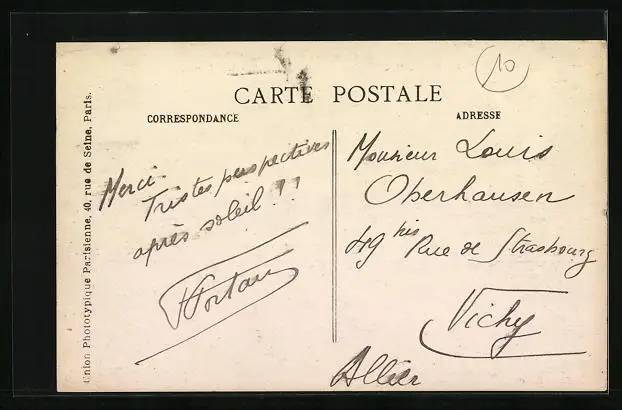 10
CARTE POSTALE
CORRESPONDANCE
ADRESSE
Union Phototypique Parisienne, 40, rue de Seine, Paris.
Merci.
Tristes perspectives
après soleil !!
Monsieur Louis
Oberhausen
49 bis Rue de Strasbourg
Vichy
Allier